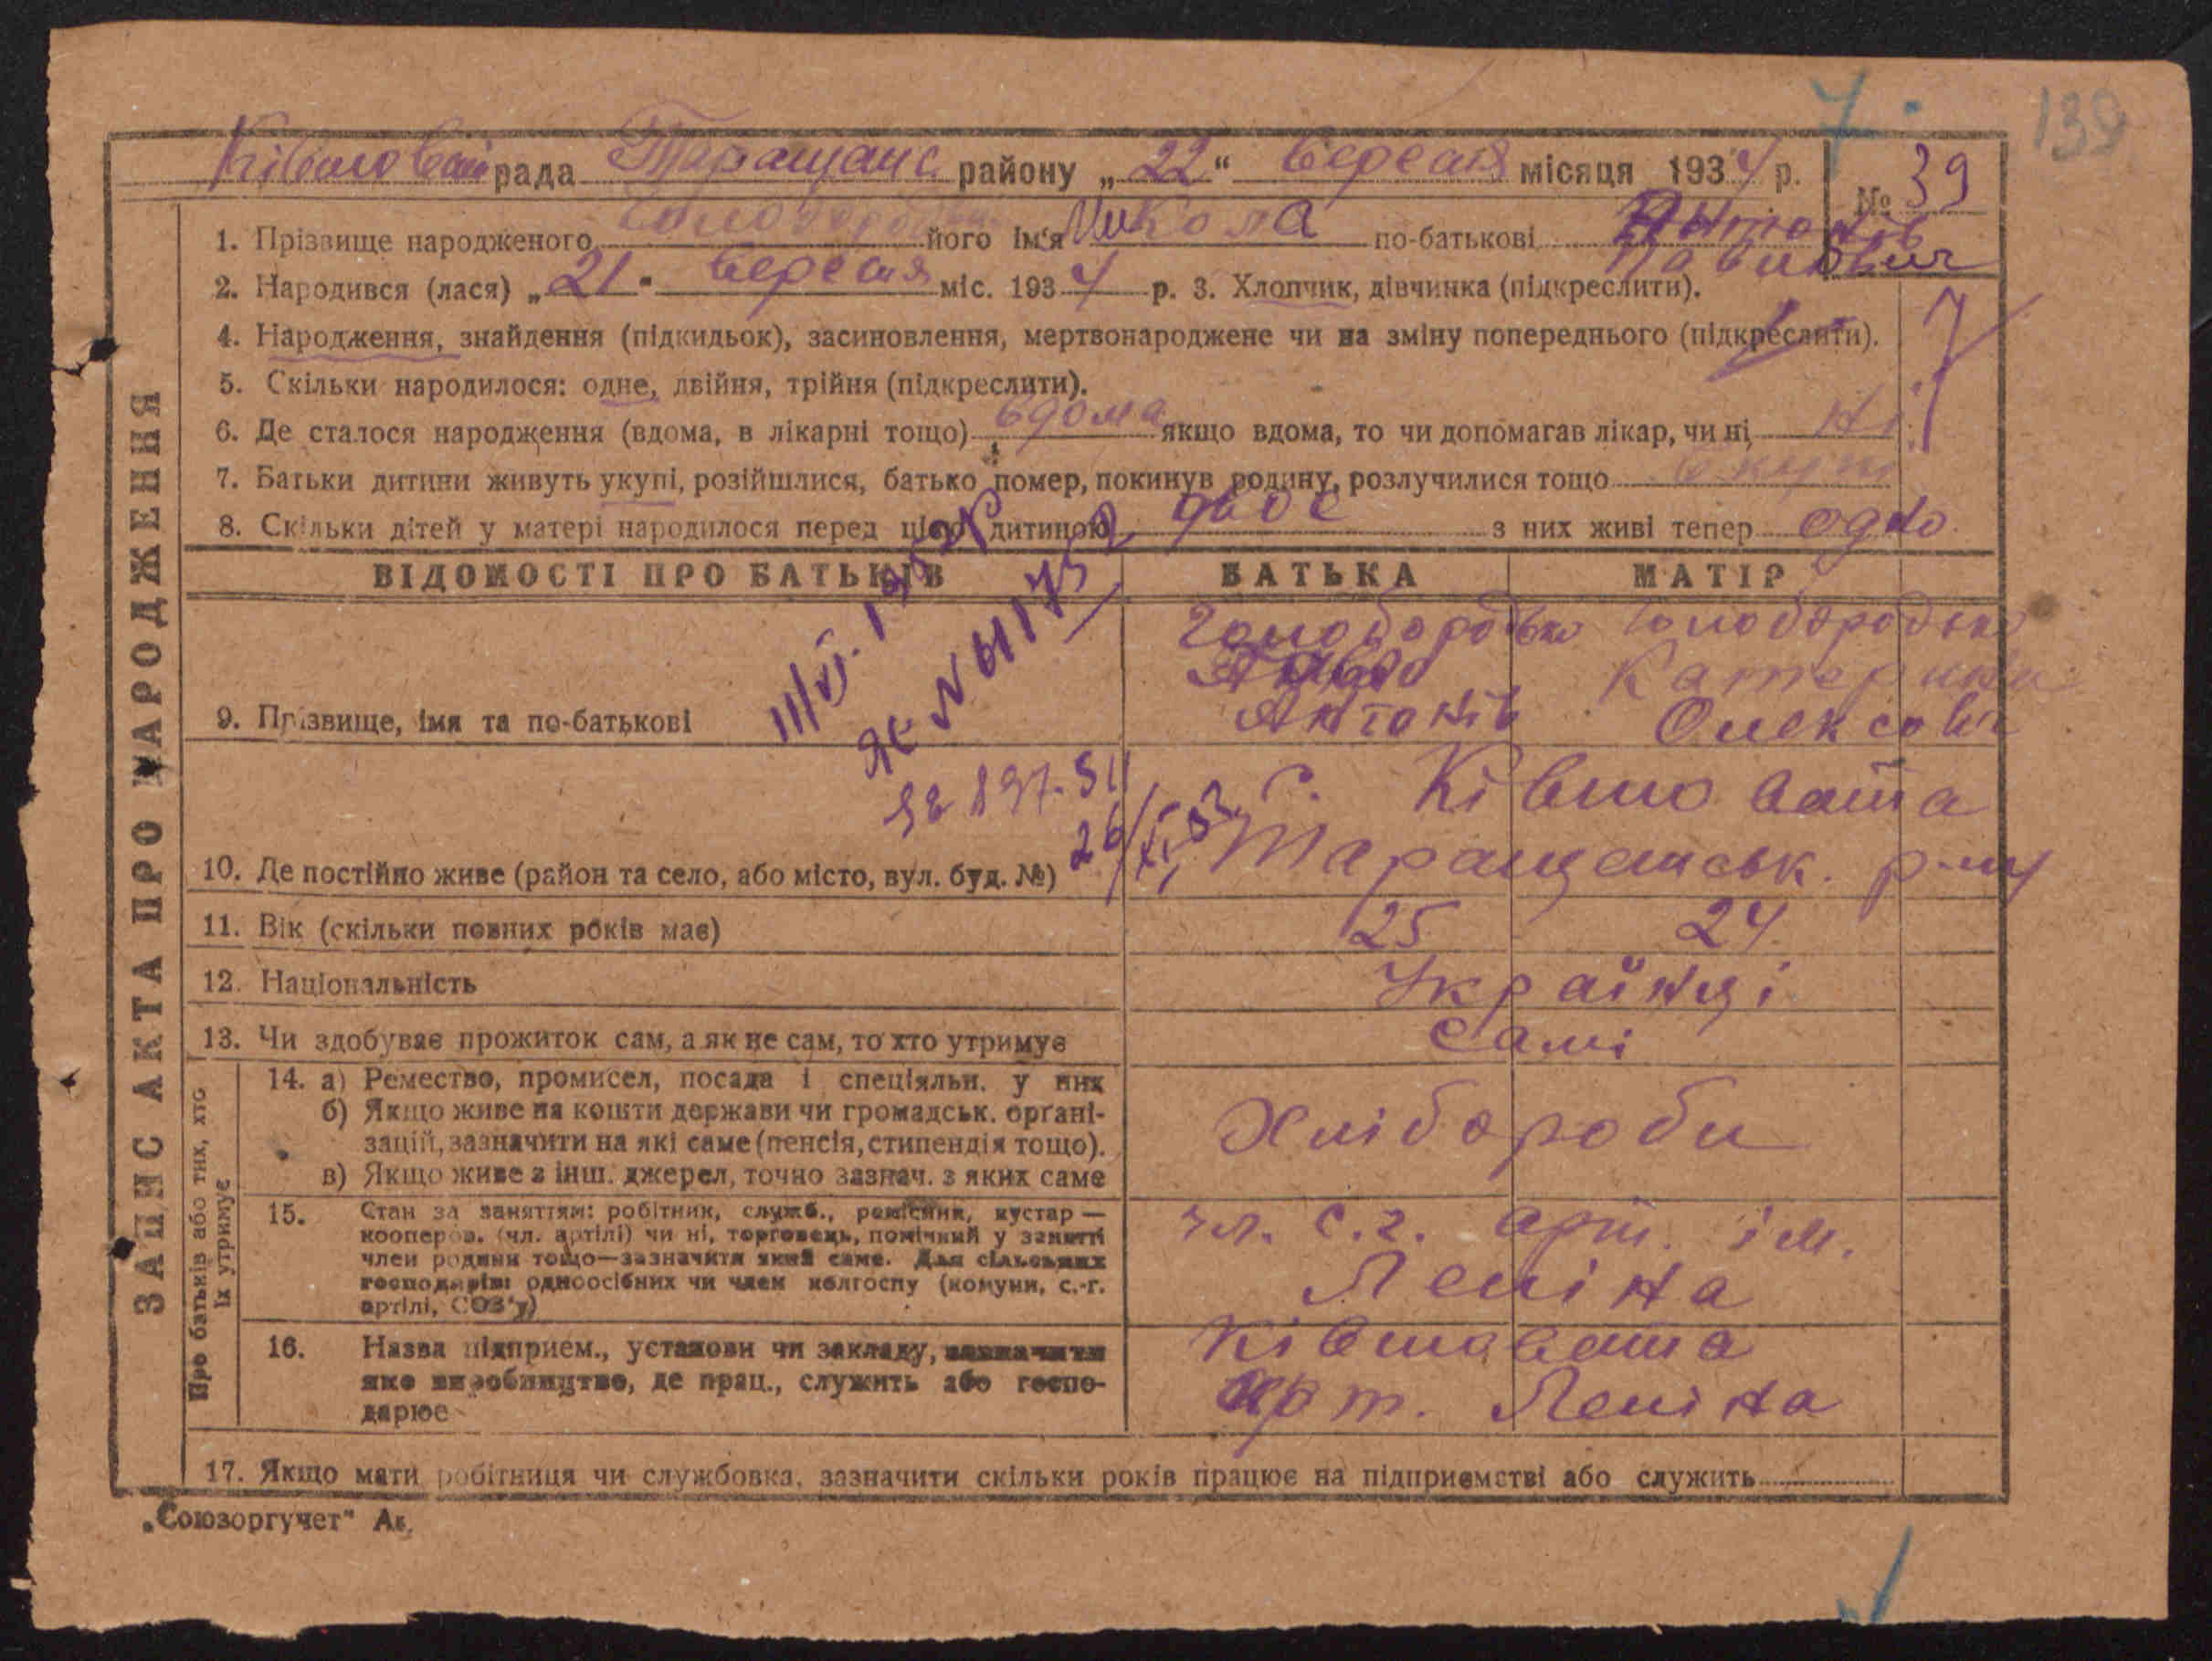 7
139
Ківшоват рада Таращанс. району „22“ Вересня місяця 1934 р. № 39
1. Прізвище народженого Голобородько його Ім'я Микола по-батькові Антонів
Павлович
2. Народився (лася) „21" Вересня міс. 1934 р. 3. Хлопчик, дівчинка (підкреслити).
4. Народження, знайдення (підкидьок), засиновлення, мертвонароджене чи на зміну попереднього (підкреслити).
5. Скільки народилося: одне, двійня, трійня (підкреслити).
6. Де сталося народження (вдома, в лікарні тощо) вдома якщо вдома, то чи допомагав лікар, чи ні Ні
7. Батьки дитини живуть укупі, розійшлися, батько помер, покинув родину, розлучилися тощо вкупі
8. Скільки дітей у матері народилося перед цією дитиною двоє з них живі тепер одно
ЗАПИС АКТА ПРО НАРОДЖЕННЯ
ВІДОМОСТІ ПРО БАТЬКІВ БАТЬКА МАТІР
Голобородько Голобородько
Павло Катерина
9. Прізвище, імя та по-батькові Антонів Олексовн
с. Ківшовата
10. Де постійно живе (район та село, або місто, вул. буд. №) Таращанськ. р-ну
11. Вік (скільки повних років має) 25 24
12. Національність Українці
13. Чи здобуває прожиток сам, а як не сам, то хто утримує Самі
Про батьків або тих, хто
їх утримує
14. а) Ремество, промисел, посада і спеціяльн. у них
б) Якщо живе на кошти держави чи громадськ. органі-
зацій, зазначити на які саме (пенсія, стипендія тощо). Хлібороби
в) Якщо живе з інш. джерел, точно зазнач. з яких саме
15. Стан за заняттям: робітник, служб., ремісник, кустар — чл. с.г. арт. ім.
кооперов. (чл. артілі) чи ні, торговець, помічний у занятті
член родини тощо—зазначити який саме. Для сільських
господарів: одноосібних чи член колгоспу (комуни, с.-г. Леніна
артілі, СОЗ'у)
16. Назва підприєм., установи чи закладу, зазначити Ківшовата
яке виробництво, де прац., служить або госпо- арт. Леніна
дарює
17. Якщо мати робітниця чи службовка, зазначити скільки років працює на підприємстві або служить
„Союзоргучет"